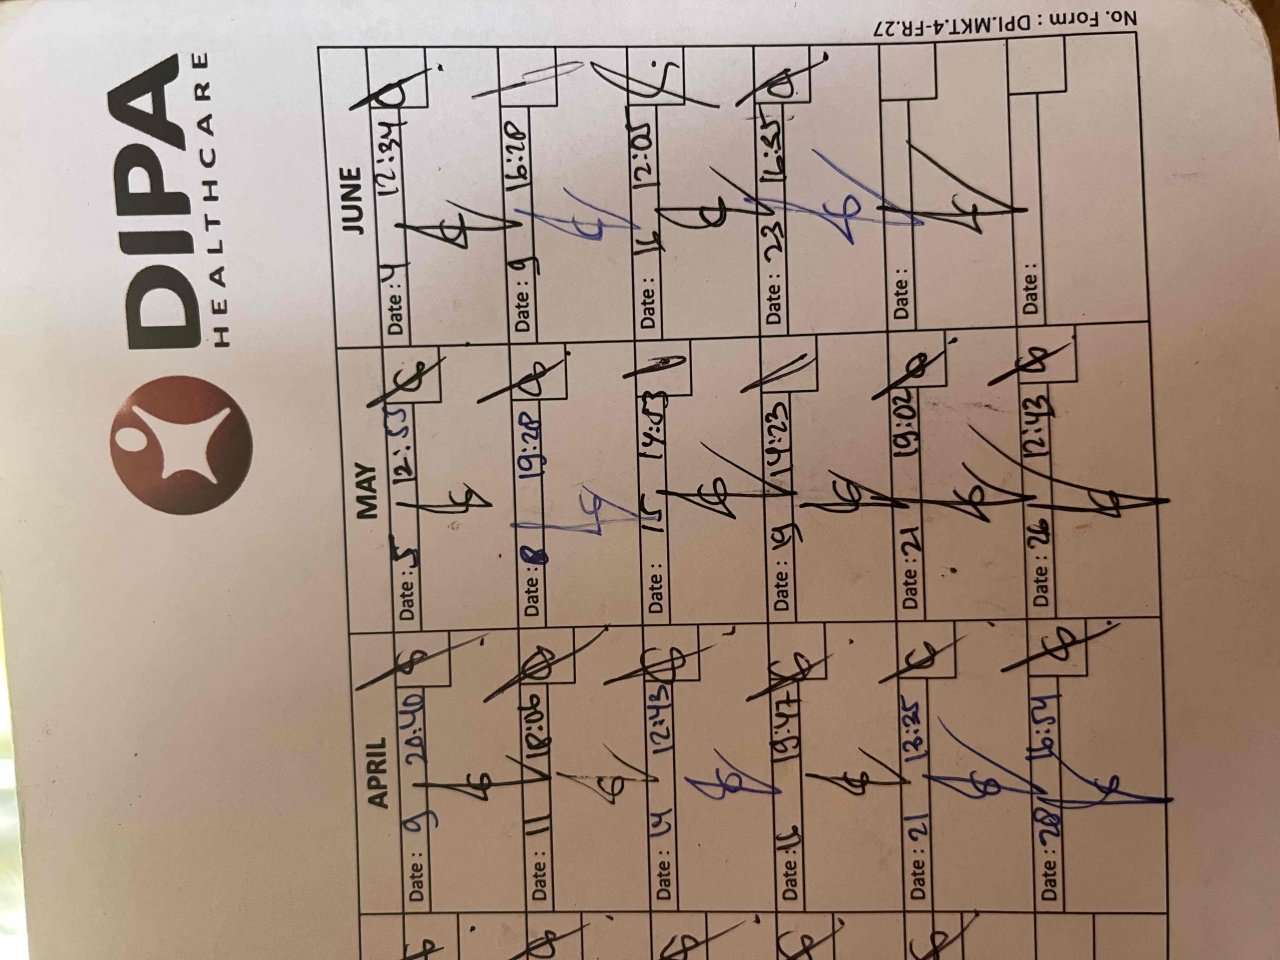 DIPA
HEALTHCARE
APRIL MAY JUNE
Date : 9 20:40 Date : 5 12:53 Date : 4 12:34
Date : 11 18:06 Date : 8 19:28 Date : 9 16:28
Date : 14 12:43 Date : 15 14:53 Date : 16 12:05
Date : 16 19:47 Date : 19 14:23 Date : 23 16:35
Date : 21 13:35 Date : 21 19:02 Date :
Date : 28 16:54 Date : 26 12:43 Date :
No. Form : DPI.MKT.4-FR.27